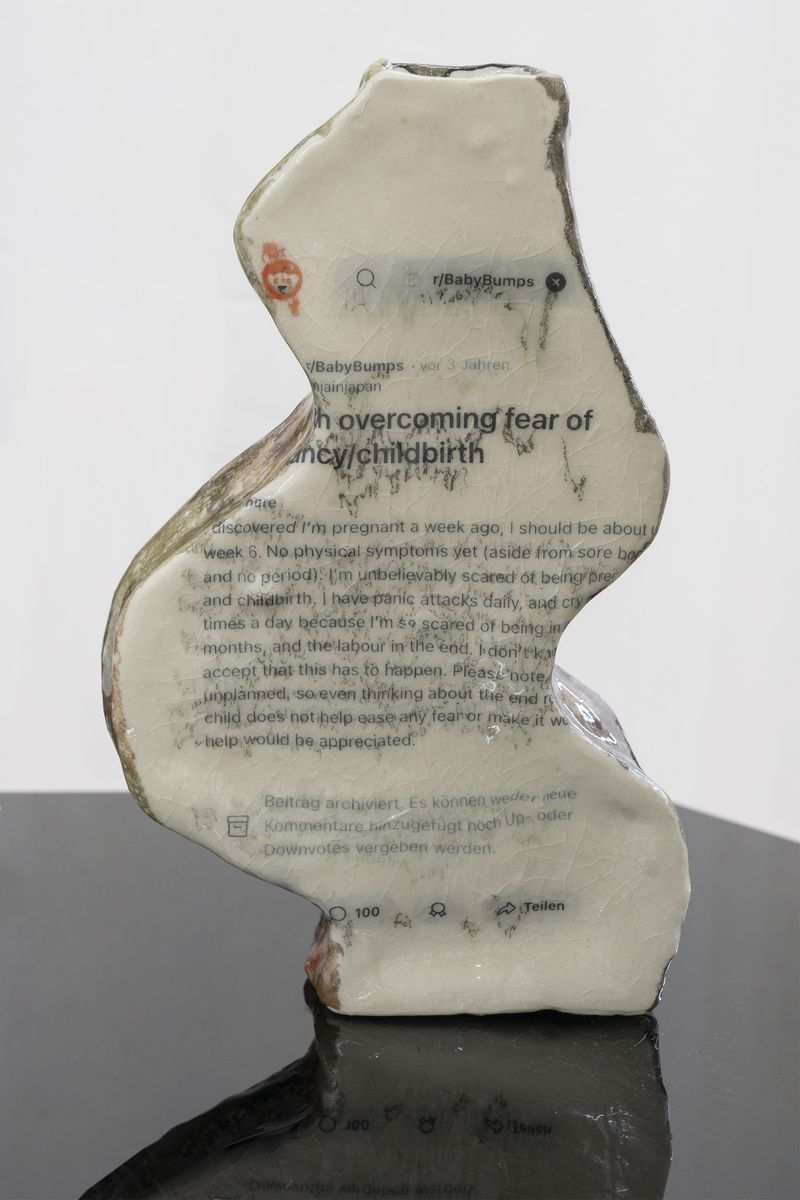 r/BabyBumps
r/BabyBumps · vor 3 Jahren
njainjapan
h overcoming fear of
ancy/childbirth
here
discovered I'm pregnant a week ago, I should be about
week 6. No physical symptoms yet (aside from sore boo
and no period). I'm unbelievably scared of being preg
and childbirth. I have panic attacks daily, and cry
times a day because I'm so scared of being in
months, and the labour in the end. I don't kno
accept that this has to happen. Please note,
unplanned, so even thinking about the end re
child does not help ease any fear or make it wo
help would be appreciated.
Beitrag archiviert. Es können weder neue
Kommentare hinzugefügt noch Up-, oder
Downvotes vergeben werden.
100 Teilen
100 Teilen
Downvotes vergeben werden.